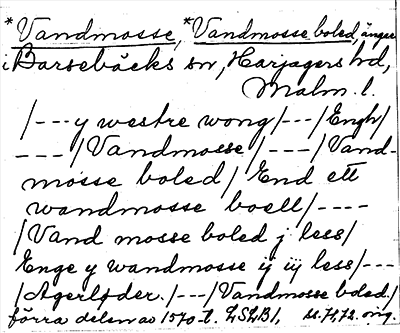 *Vandmosse, *Vandmosse boled, änger
i Barsebäcks sn, Harjagers hd,
Malm. l.
/---y westre wong/---/Engh/
---/Vandmosse/---/Vand-
mosse boled/ End ett
wandmosse boell/----
/Vand mosse boled j less/
Enge y wandmosse ij iij less/---
/Agerløder./---/Vandmosse boled./
förra delen av 1570-t. LSLB1, s. 71, 72. orig.